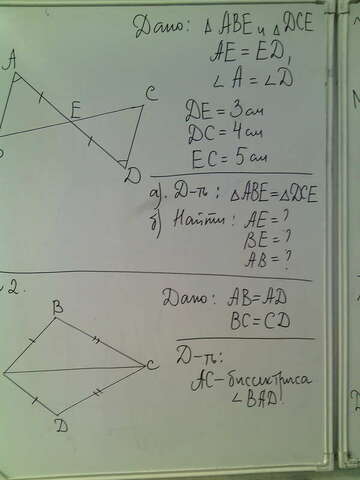 Дано: △ ABE и △DCE
AE = ED,
∠ A = ∠ D
DE = 3 см
DC = 4 см
EC = 5 см
а). Д-ть: △ABE = △DCE
б) Найти: AE = ?
BE = ?
AB = ?
A
E
C
D
2.
Дано: AB = AD
BC = CD
Д-ть:
AC - биссектриса
∠ BAD.
B
C
D